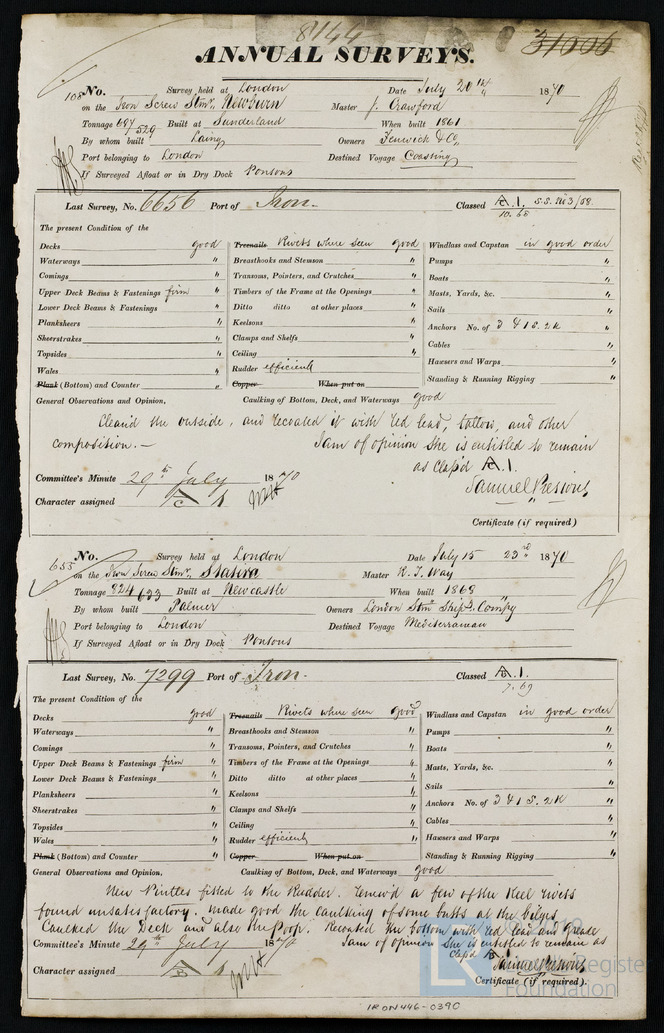 8144
31006
ANNUAL SURVEYS.
108 No. Survey held at London Date July 20th 1870
on the Iron Screw Stmr. Newburn Master J. Crawford
Tonnage 687/529 Built at Sunderland When built 1861
By whom built Laing Owners Fenwick & Co.
Port belonging to London Destined Voyage Coasting
If Surveyed Afloat or in Dry Dock Ponsons
Last Survey, No. 6656 Port of Iron. Classed A.1. S.S. No 3/68
10.68
The present Condition of the
Decks good Treenails Rivets where seen good Windlass and Capstan in good order
Waterways " Breasthooks and Stemson " Pumps "
Comings " Transoms, Pointers, and Crutches " Boats "
Upper Deck Beams & Fastenings firm " Timbers of the Frame at the Openings " Masts, Yards, &c. "
Lower Deck Beams & Fastenings " Ditto ditto at other places " Sails "
Planksheers " Keelsons " Anchors No. of 3 & 1 S. 2K "
Sheerstrakes " Clamps and Shelfs " Cables "
Topsides " Ceiling " Hawsers and Warps "
Wales " Rudder efficient Standing & Running Rigging "
Plank (Bottom) and Counter " Copper When put on
General Observations and Opinion, Caulking of Bottom, Deck, and Waterways good
Clean'd the outside, and recoated it with red lead, tallow, and other
composition.— I am of opinion she is entitled to remain
as Class'd A.1.
Committee's Minute 29th July 1870
Character assigned A 1
Certificate (if required)
655 No. Survey held at London Date July 15 23rd 1870
on the Iron Screw Stmr. Statira Master R. T. Way
Tonnage 824 633 Built at Newcastle When built 1868
By whom built Palmer Owners London Stm Ship. Compy
Port belonging to London Destined Voyage Mediterranean
If Surveyed Afloat or in Dry Dock Ponsons
Last Survey, No. 7299 Port of Iron. Classed A.1.
7.69
The present Condition of the
Decks good Treenails Rivets where seen good Windlass and Capstan in good order
Waterways " Breasthooks and Stemson " Pumps "
Comings " Transoms, Pointers, and Crutches " Boats "
Upper Deck Beams & Fastenings firm " Timbers of the Frame at the Openings " Masts, Yards, &c. "
Lower Deck Beams & Fastenings " Ditto ditto at other places " Sails "
Planksheers " Keelsons " Anchors No. of 3 & 1 S. 2K "
Sheerstrakes " Clamps and Shelfs " Cables "
Topsides " Ceiling " Hawsers and Warps "
Wales " Rudder efficient " Standing & Running Rigging "
Plank (Bottom) and Counter " Copper When put on
General Observations and Opinion, Caulking of Bottom, Deck, and Waterways good
New Pintles fitted to the Rudder. Renew'd a few of the Keel rivets
found unsatisfactory. made good the caulking of some butts at the bilges
Caulked the Deck and also the Poop. Recoated the bottom with red lead and grease
Committee's Minute 29th July 1870 I am of opinion she is entitled to remain as
Class'd A.1.
Character assigned A 1
Certificate (if required)
© 2019
Lloyd's Register
Foundation
IRON446-0390